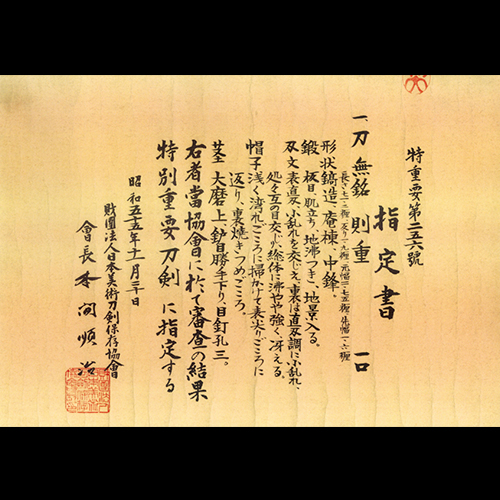 特重要第二五六號
指定書
一、刀 無銘 則重 一口
形状 鎬造、庵棟、中鋒。
鍛 板目、肌立ち、地沸つき、地景入る。
刃文 表直刃、小乱れを交じえ、裏は直刃調に小乱れ、
処々互の目交じり、総体に沸やや強く冴える。
帽子 浅く湾れごころに掃かけて表尖りごころに
返り、裏焼きつめごころ。
茎 大磨上、鑢目勝手下り、目釘孔三。
右者當協會に於て審査の結果
特別重要刀剣に指定する
昭和五五年十一月二日
財團法人日本美術刀剣保存協會
會長 本間順治